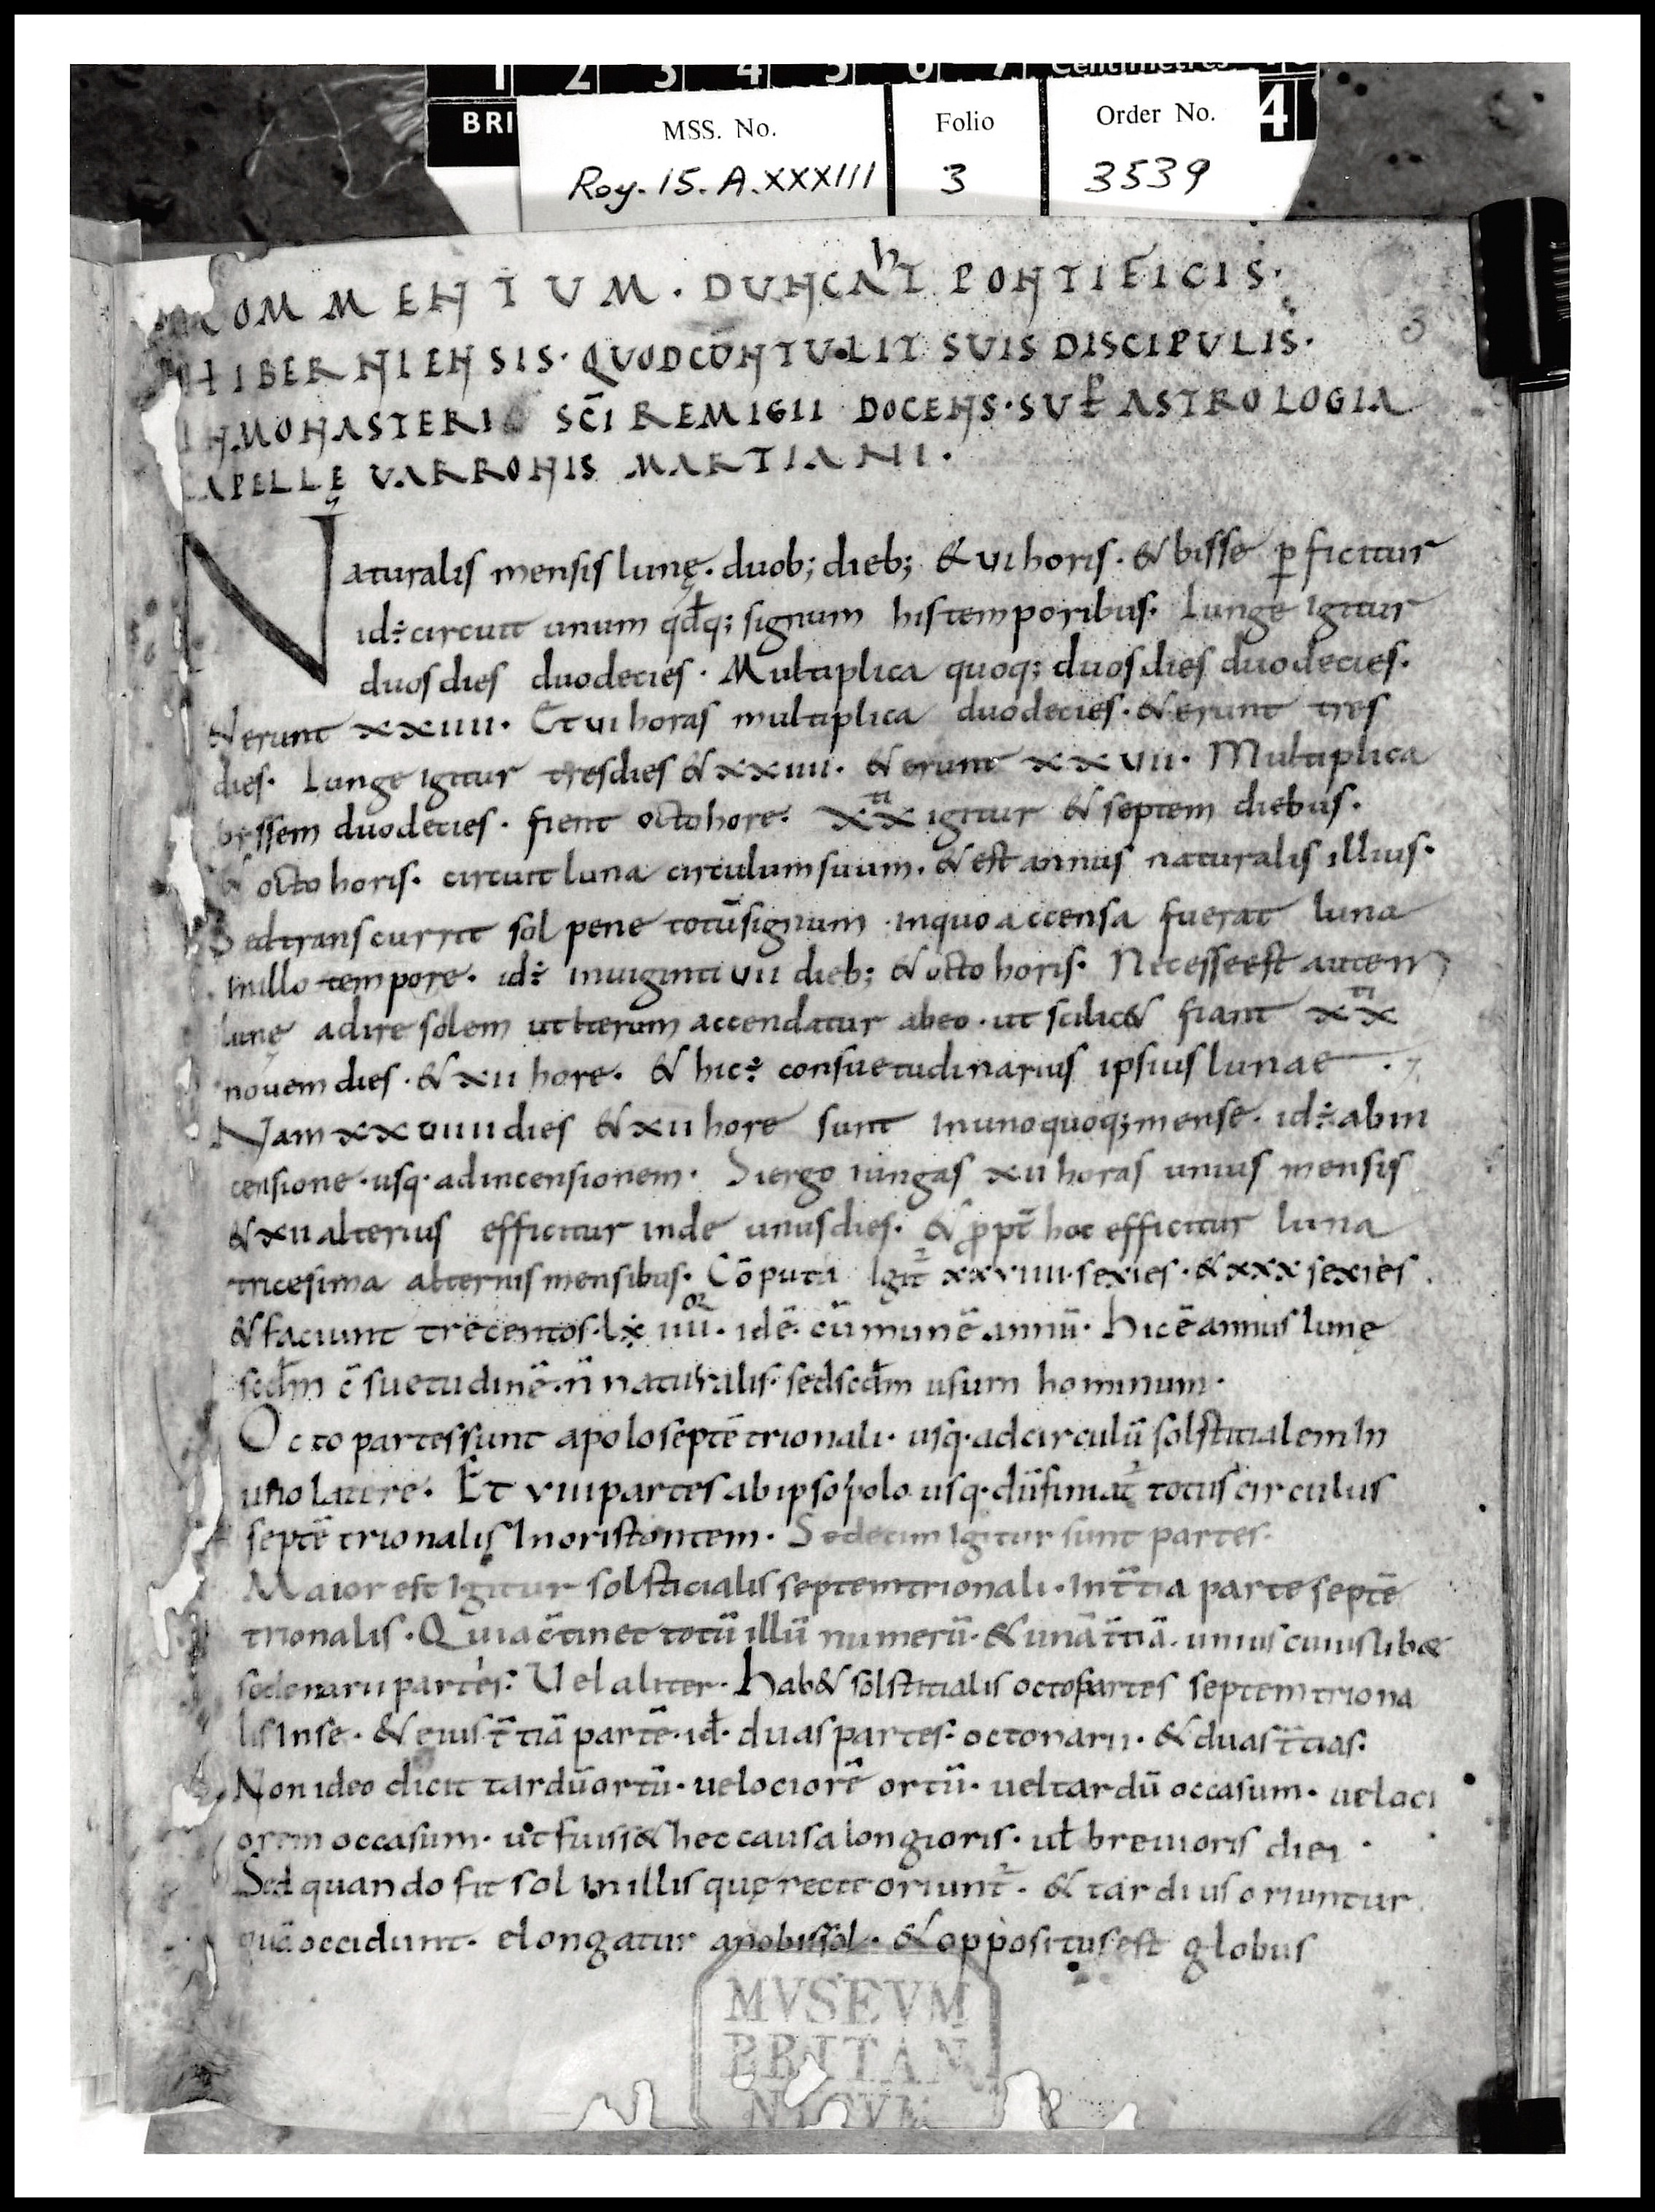 1 2 3 4 5 6 7 Centimetres
BRI
MSS. No. Folio Order No. 4
Roy. 15. A. XXXIII 3 3539
3
OMMENTUM · DUNCAhT PONTIFICIS ·
HIBERNIENSIS · QUOD CŌNTULIT SUIS DISCIPULIS ·
IN MONASTERI SC̄I REMIGII DOCENS · SUꝑ ASTROLOGIA
APELLĘ VARRONIS MARTIANI ·
Naturalis mensis lunę · duob; dieb; & ui horis · & bisse ꝑficitur
id÷ circuit unum qđq; signum his temporibus · Iunge igitur
duos dies duodecies · Multiplica quoq; duos dies duodecies ·
& erunt xxiiii · Et ui horas multiplica duodecies · & erunt tres
dies · Iunge igitur tres dies & xxiiii · & erunt xxuii · Multiplica
bessem duodecies · fient octo hore · xx^ti igitur & septem diebus ·
& octo horis · circuit luna circulum suum · & est annus naturalis illius ·
Sed transcurrit sol pene totū signum · in quo accensa fuerat luna
in illo tempore · id÷ in uiginti uii dieb; & octo horis · Necesse est autem
lunę adire solem ut iterum accendatur ab eo · ut scilic& fiant xx^ti
nouem dies · & xii hore · & hic÷ consuetudinarius ipsius lunae · 7
Nam xxuiiii dies & xii hore sunt in unoquoq; mense · id÷ ab in
censione · usq· ad incensionem · Si ergo iungas xii horas unius mensis
& xii alterius efficitur inde unus dies · & ꝓpt̄ hoc efficitur luna
tricesima alternis mensibus · Cōputa Igit̄ xxviiii · sexies · & xxx sexies ·
& faciunt trecentos · lx iiii^or · idē · cūmunē annū · hic ē annus lunę
scđm c̄suetudinē · n̄ naturalis · sed scđm usum hominum ·
Octo partes sunt a polo septētrionali · usq· ad circulū solstitialem In
uno latere · Et viii partes ab ipso polo usq· dū finiat̄ totus circulus
septētrionalis In oristontem · Sedecim Igitur sunt partes ·
Maior est Igitur solsticialis septemtrionali · In t̄tia parte septē
trionalis · Quia c̄tinet totū illū numerū · & unā t̄tiā · unius cuiuslibæ
sedenarii partes · Uel aliter · hab& solstitialis octo partes septemtriona
lis In se · & eius t̄tiā partē · id̄ · duas partes · octonarii · & duas t̄tias ·
Non ideo dicit tardū ortū · uelociorē ortū · uel tardū occasum · ueloci
orem occasum · ut fuiss& hec causa longioris · uł breuioris diei ·
Sed quando fit sol in illis quę recte oriunt̄ · & tardius oriuntur
quā occidunt · elongatur a nobis sol · & oppositus est globus
MVSEVM
BRITAN
NICVM